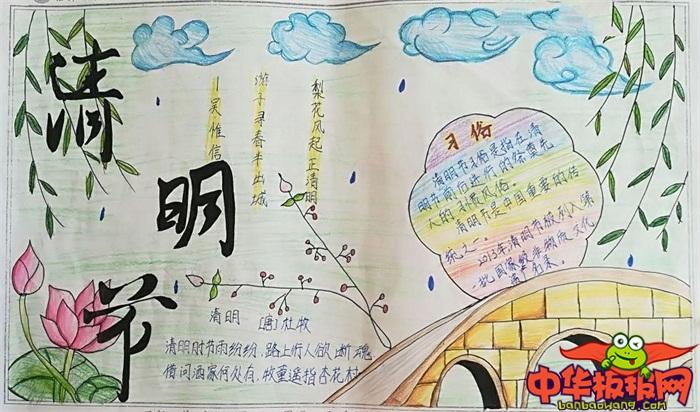 清
明
节
梨花风起正清明
游子寻春半出城
吴惟信
清明
[唐]杜牧
清明时节雨纷纷,路上行人欲断魂
借问酒家何处有,牧童遥指杏花村
习俗
清明节习俗是指在清
明节前后进行的祭奠先
人的
风俗。
清明节是中国重要的传
统之一。
2013年清明节被列入第
一批国家级非物质文化
中华板报网
banbaowang.com